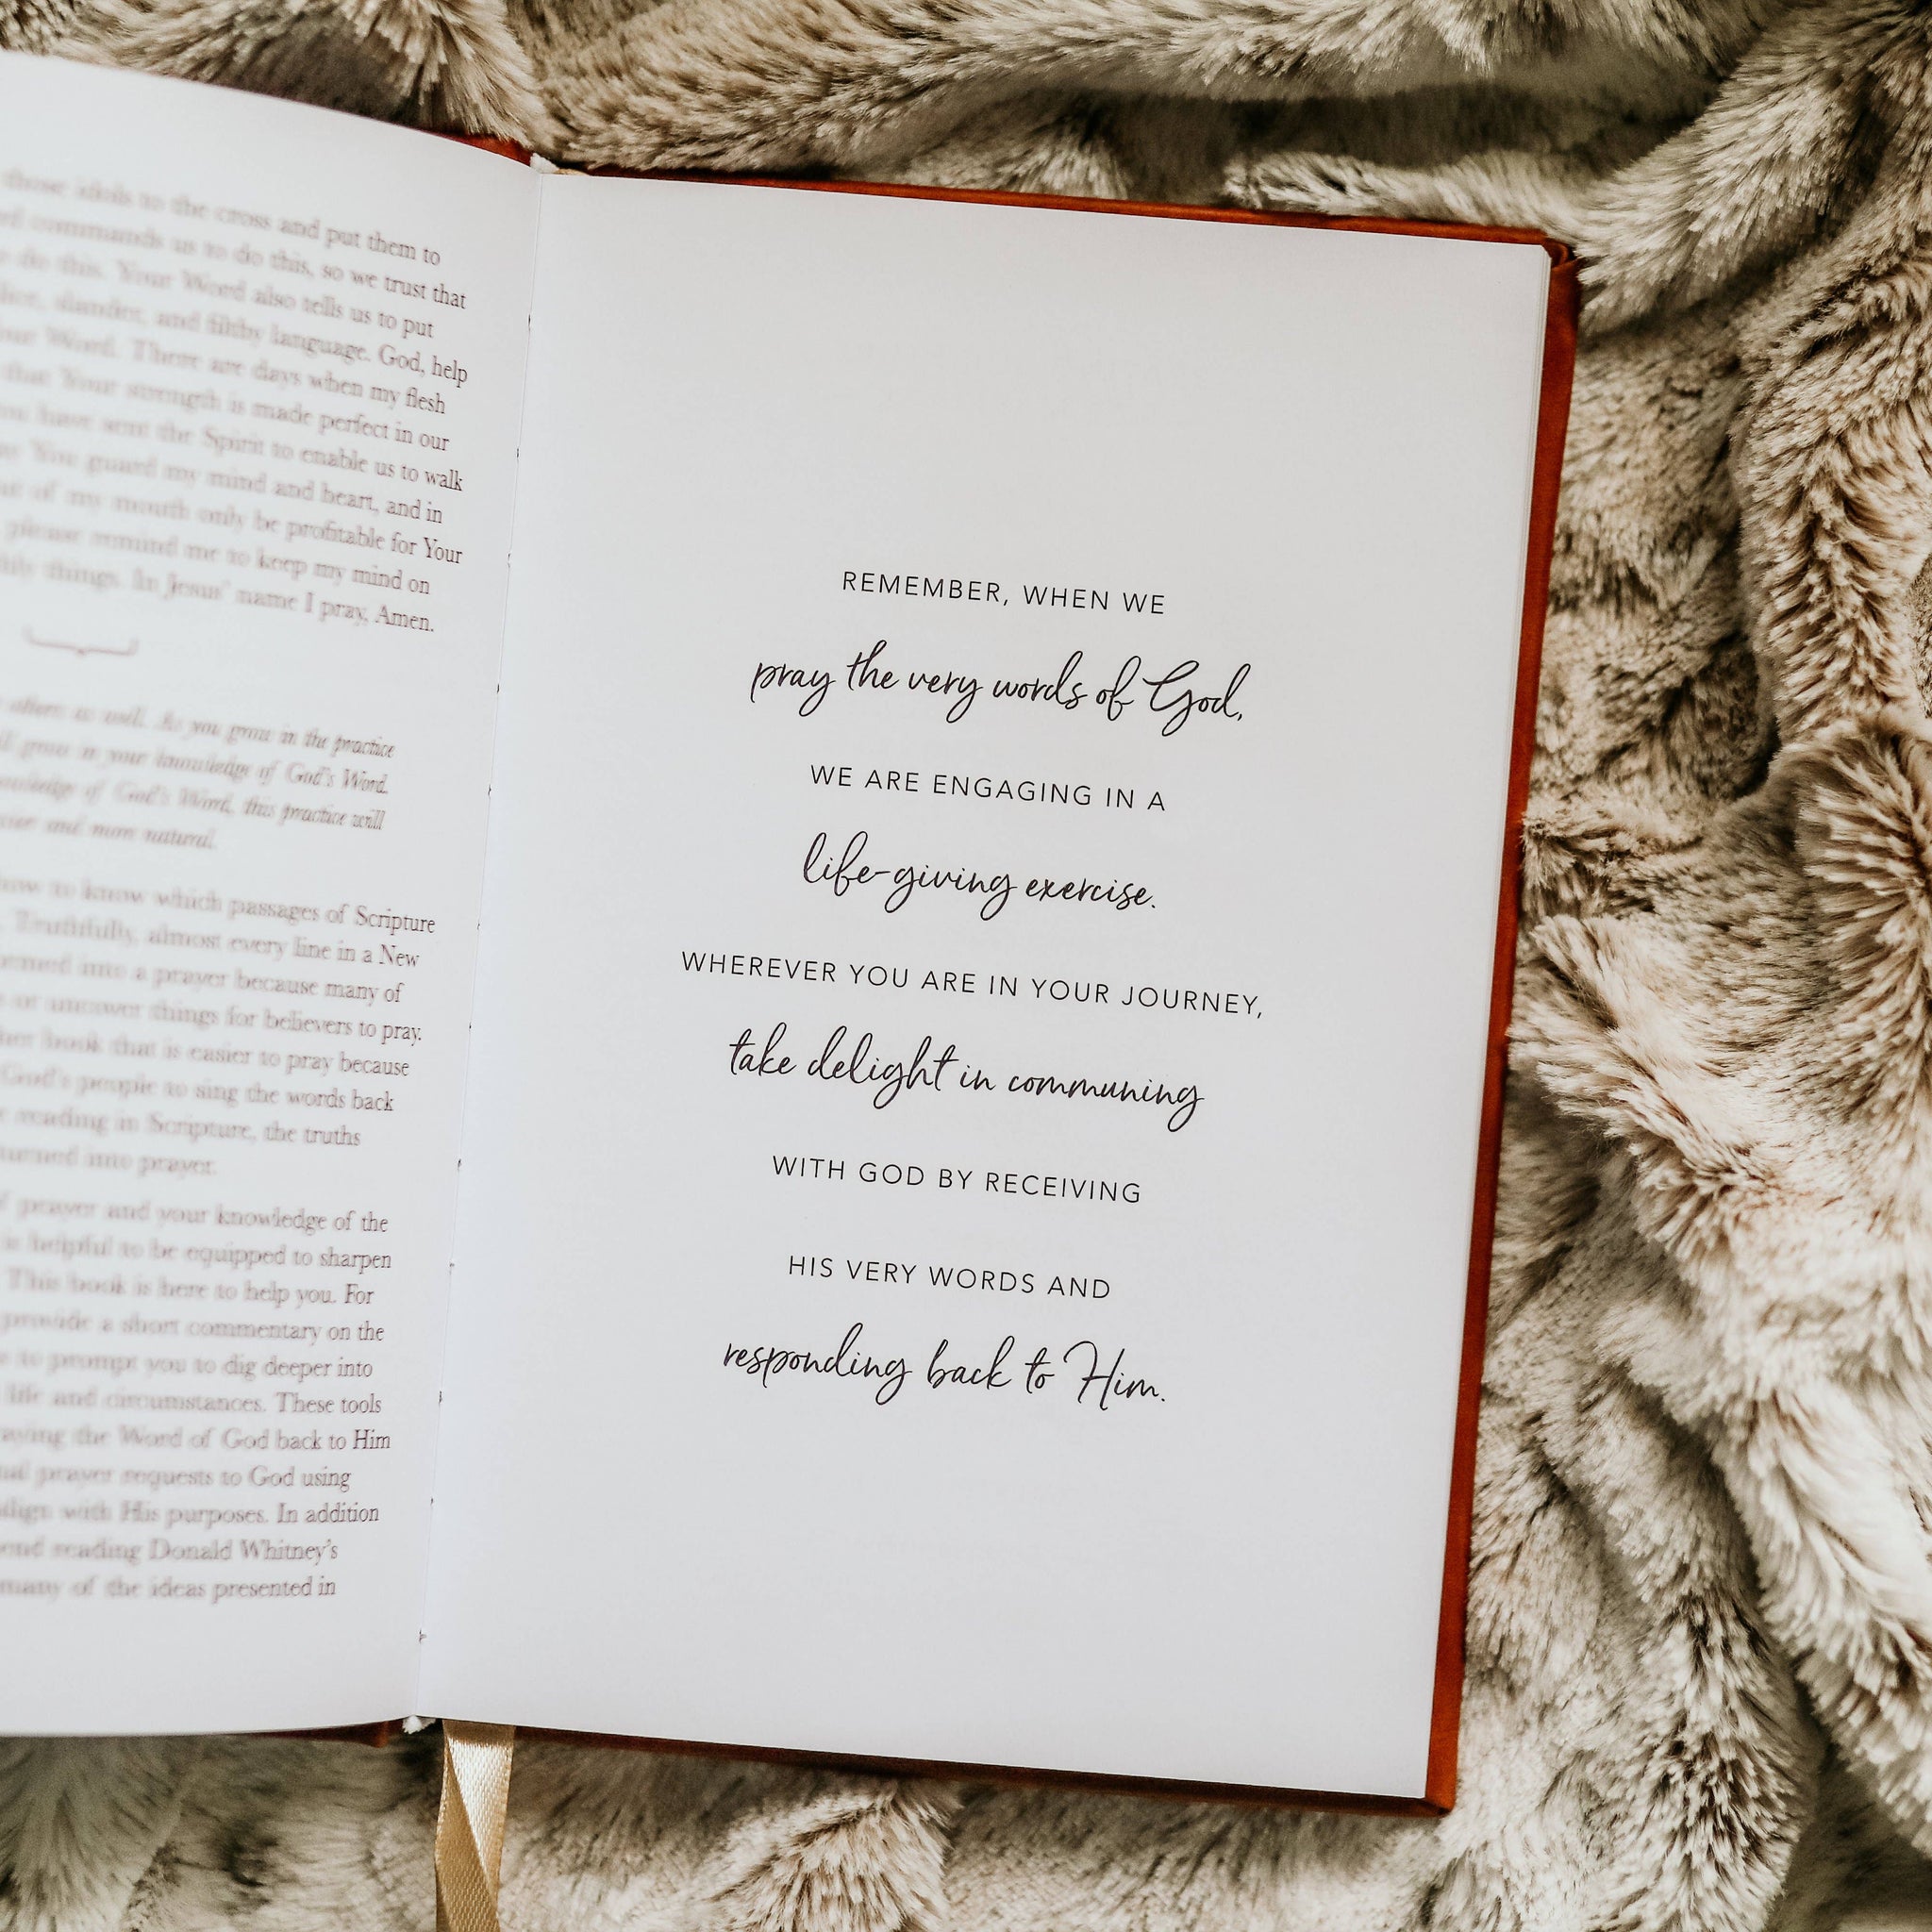 those idols to the cross and put them to
commands us to do this, so we trust that
do this. Your Word also tells us to put
slander, and filthy language. God, help
Word. There are days when my flesh
that Your strength is made perfect in our
have sent the Spirit to enable us to walk
You guard my mind and heart, and in
of my mouth only be profitable for Your
please remind me to keep my mind on
things. In Jesus' name I pray, Amen.
others as well. As you grow in the practice
grow in your knowledge of God's Word.
knowledge of God's Word, this practice will
and more natural.
how to know which passages of Scripture
Truthfully, almost every line in a New
turned into a prayer because many of
or uncover things for believers to pray.
book that is easier to pray because
God's people to sing the words back
reading in Scripture, the truths
turned into prayer.
prayer and your knowledge of the
is helpful to be equipped to sharpen
This book is here to help you. For
provide a short commentary on the
to prompt you to dig deeper into
life and circumstances. These tools
praying the Word of God back to Him
prayer requests to God using
align with His purposes. In addition
reading Donald Whitney's
many of the ideas presented in
REMEMBER, WHEN WE
pray the very words of God,
WE ARE ENGAGING IN A
life-giving exercise.
WHEREVER YOU ARE IN YOUR JOURNEY,
take delight in communing
WITH GOD BY RECEIVING
HIS VERY WORDS AND
responding back to Him.